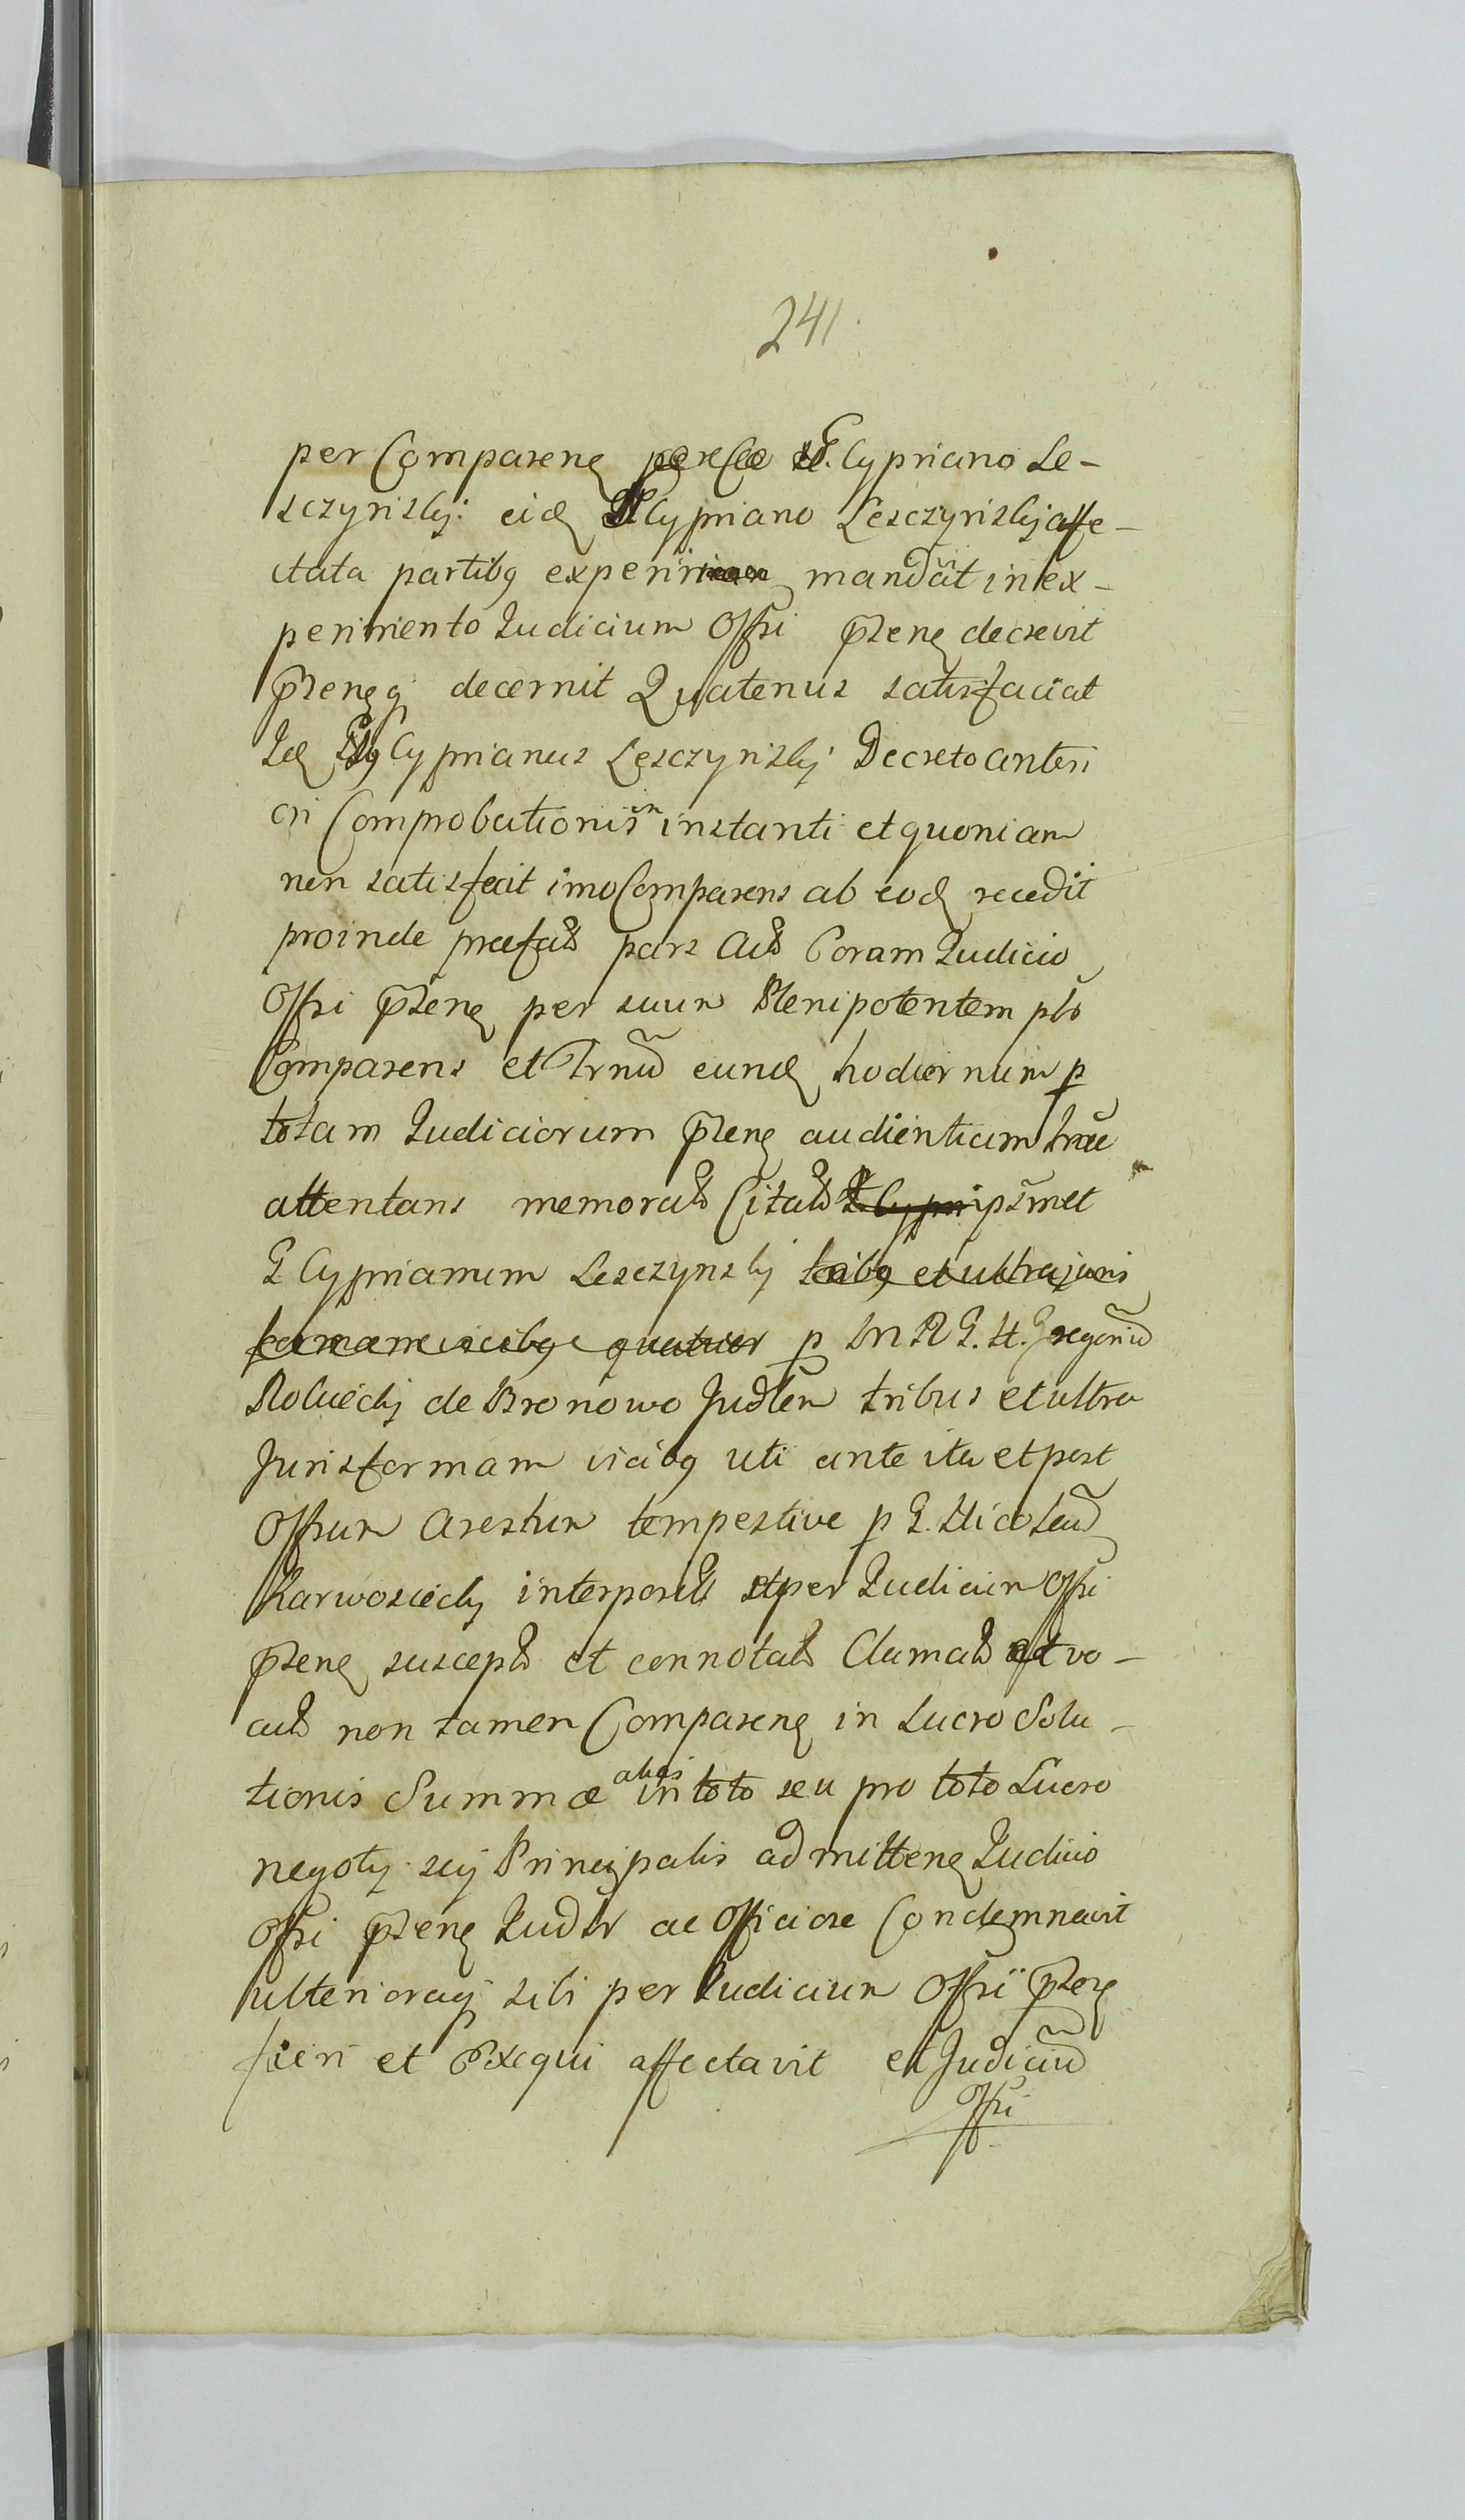 241.
per Comparenꝫ G. Cypriano Le-
szczynskij eidꝫ G Cypriano Lesczynskij affe-
ctata partibꝫ experiri mandavit in ex-
perimento Iudicium Offri p̃senꝫ decrevit
p̃senꝫqꝫ decernit Quatenus satisfaciat
Idꝫ Gsus Cyprianus Lesczynskij Decreto anteri
ori Comprobationis in instanti et quoniam
non satisfecit imo Comparens ab eodꝫ recedit
proinde præfata pars Acta Coram Iudicio
Offri p̃senꝫ per suum Plenipotentem pto
Comparens et Trnũ eundꝫ hodiernum p
totam Iudiciorum p̃senꝫ audientiam
attentans memorat Citat G Cypri ipsmet
G Cyprianum Lesczynskij tribꝫ et ultra juris
formam vicibꝫ quatuor p M G. H. Gregoriũ
Roluiecky de Bronowo Judlem tribus et ultra
Juris formam vicibꝫ uti ante ita et post
Offrum Arestum tempestive p G. Nicolaũ
Karwosiecky interposit et per Iudicium Offri
p̃senꝫ suscept et connotat Clamat et vo-
cat non tamen Comparenꝫ in Lucro Solu-
tionis Summæ alias in toto seu pro toto Lucro
negotÿ seÿ Principalis admittenꝫ Iudicio
Offri p̃senꝫ Iudlr ac Officiose Condemnavit
ulterioraqꝫ sibi per Iudicium Offri p̃senꝫ
fieri et Exequi affectavit et Judiciũ
Offri